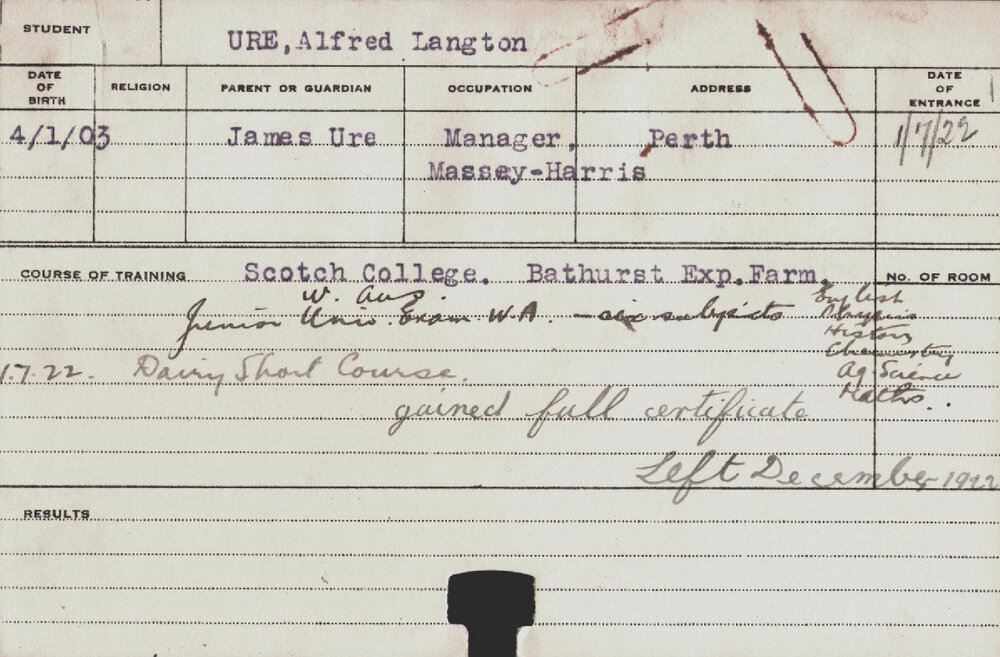 STUDENT
URE,Alfred Langton
DATE OF BIRTH
RELIGION
PARENT OR GUARDIAN
OCCUPATION
ADDRESS
DATE OF ENTRANCE
4/1/03
James Ure
Manager,
Perth
1/7/22
Massey-Harris
COURSE OF TRAINING
Scotch College. Bathurst Exp.Farm.
No. OF ROOM
W. Aus.
Junior Univ. Exam W.A. - six subjects
English
Physics
History
Chemistry
Ag. Science
Maths.
1.7.22. Dairy Short Course.
gained full certificate
Left December 1922
RESULTS